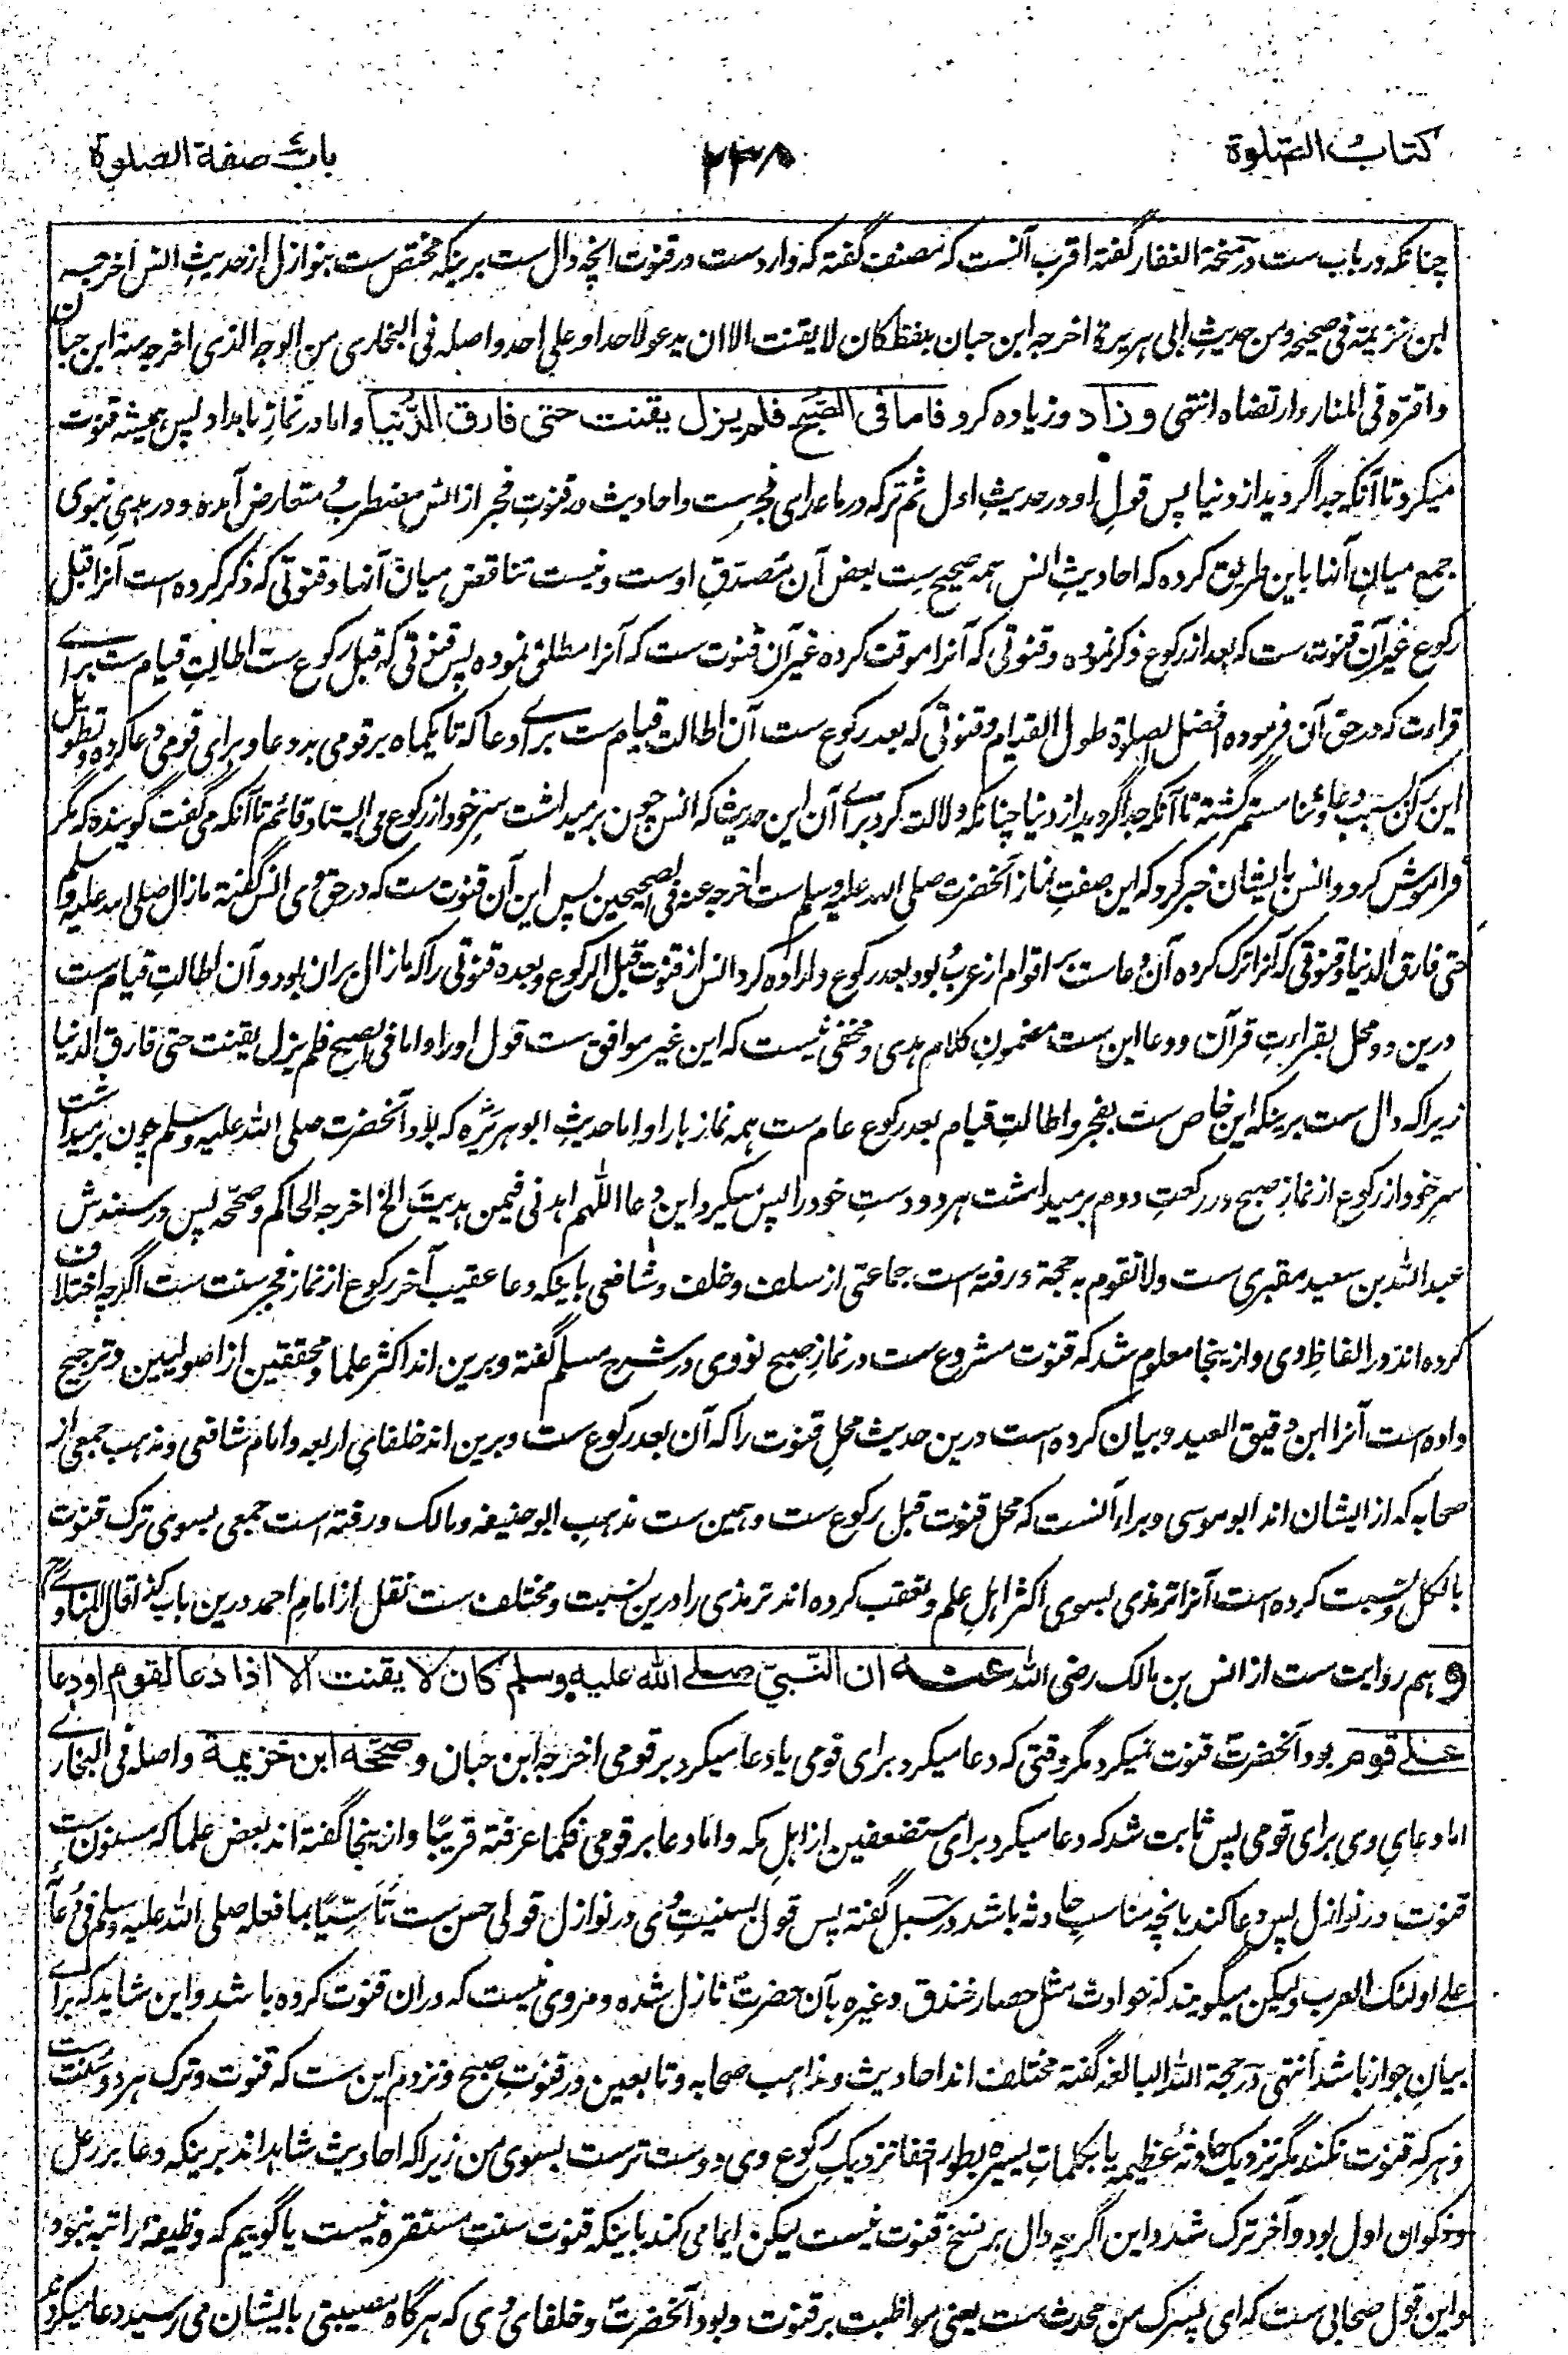 کتاب الصلوة
۲۳۸
باب صفة الصلوة
چنانکه در باب ست در منحة الغفار گفته اقرب آنست که مصنف گفته که وارد ست در قنوت انچه دال ست برینکه مختص ست بنوازل از حدیث انس اخرجه
ابن خزیمة فی صحیحه ومن حدیث ابی هریرة اخرجه ابن حبان بلفظ کان لا یقنت الا ان یدعو لاحد او علی احد واصله فی البخاری من الوجه الذی اخرجه منه ابن حبان
واقره فی المنار وارتضاه انتهی وزاد وزیاده کرد فاما فی الصبح فلم یزل یقنت حتی فارق الدنیا واما در نماز بامداد پس همیشه قنوت
میکرد تا آنکه جدا گردید از دنیا پس قول او در حدیث اول ثم ترکه در ماعدای فجرست واحادیث در قنوت فجر از انس مضطرب متعارض آمده و در هدی نبوی
جمع میان آنها باین طریق کرده که احادیث انس همه صحیح ست بعض آن مصدق اوست ونیست تناقض میان آنها وقنوتی که ذکر کرده است آنرا قبل
رکوع غیر آن قنوت ست که بعد از رکوع ذکر نموده وقنوتی که آنرا موقت کرده غیر آن قنوت ست که آنرا مطلق نموده پس قنوتی که قبل رکوع ست اطالت قیام ست برای
قراءت که در حق آن فرموده افضل الصلوة طول القیام وقنوتی که بعد رکوع ست آن اطالت قیام ست برای دعا که تا یکماه بر قومی بد دعا وبرای قومی دعا کرده وتطویل
این رکن بسبب دعا وثنا مستمر گشته تا آنکه جدا گردید از دنیا چنانکه دلالت کرد برای آن این حدیث که انس چون برمیداشت سر خود از رکوع می ایستاد قائم تا آنکه می گفت گوینده که مگر
فراموش کرد وانس بایشان خبر کرد که این صفت نماز آنحضرت صلی الله علیه وسلم ست اخرجه عنه فی الصحیحین پس این آن قنوت ست که در حق وی انس گفته مازال صلی الله علیه وسلم
حتی فارق الدنیا وقنوتی که آنرا ترک کرده آن دعاست بر اقوام از عرب بود بعد رکوع واراده کرد انس از قنوت قبل الرکوع وبعده قنوتی را که مازال بران بود وآن اطالت قیام ست
درین دو محل بقراءت قرآن ودعا این ست مضمون کلام هدی ومخفی نیست که این غیر موافق ست قول او را واما فی الصبح فلم یزل یقنت حتی فارق الدنیا
زیرا که دال ست برینکه این خاص ست بفجر واطالت قیام بعد رکوع عام ست همه نماز ها را واما حدیث ابوهریره که بود آنحضرت صلی الله علیه وسلم چون برمیداشت
سر خود از رکوع از نماز صبح در رکعت دوم برمیداشت هر دو دست خود را پس میکرد این دعا اللهم اهدنی فیمن هدیت الخ اخرجه الحاکم وصححه پس در سندش
عبدالله بن سعید مقبری ست ولا تقوم به حجة ورفته است جماعتی از سلف وخلف وشافعی باینکه دعا عقیب آخر رکوع از نماز فجر سنت ست اگرچه اختلاف
کرده اند در الفاظ وی وازینجا معلوم شد که قنوت مشروع ست در نماز صبح نووی در شرح مسلم گفته وبرین اند اکثر علما ومحققین از اصولیین وترجیح
داده است آنرا ابن دقیق العید وبیان کرده است درین حدیث محل قنوت را که آن بعد رکوع ست وبرین اند خلفای اربعه وامام شافعی ومذهب جمعی از
صحابه که از ایشان اند ابوموسی وبراء آنست که محل قنوت قبل رکوع ست وهمین ست مذهب ابوحنیفه ومالک ورفته است جمعی بسوی ترک قنوت
بالکل ونسبت کرده است آنرا ترمذی بسوی اکثر اهل علم وتعقب کرده اند ترمذی را درین نسبت ومختلف ست نقل از امام احمد درین باب کذا قال المناوی
وهم روایت ست از انس بن مالک رضی الله عنه ان النبی صلی الله علیه وسلم کان لا یقنت الا اذا دعا لقوم او دعا
علی قوم بود آنحضرت قنوت نمیکرد مگر وقتی که دعا میکرد برای قومی یا دعا میکرد بر قومی اخرجه ابن حبان وصححه ابن خزیمة واصله فی البخاری
اما دعای وی برای قومی پس ثابت شد که دعا میکرد برای مستضعفین از اهل مکه واما دعا بر قومی فکما عرفته قریبا وازینجا گفته اند بعض علما که مسنون ست
قنوت در نوازل پس دعا کند بانچه مناسب حادثه باشد در سبل گفته پس قول بسنیت وی در نوازل قولی حسن ست تأسیا بما فعله صلی الله علیه وسلم فی دعائه
علی اولئک العرب ولیکن میگویند که حوادث مثل حصار خندق وغیره بآن حضرت نازل شده ومروی نیست که دران قنوت کرده باشد واین شاید که برای
بیان جواز باشد انتهی در حجة الله البالغه گفته مختلف اند احادیث ومذاهب صحابه وتابعین در قنوت صبح ونزدم این ست که قنوت وترک هر دو سنت ست
وهر که قنوت نکند مگر نزدیک حادثه عظیمه یا بکلمات یسیره بطور اخفا نزدیک رکوع وی دوست ترست بسوی من زیرا که احادیث شاهد اند برینکه دعا بر رعل
وذکوان اول بود وآخر ترک شد واین اگرچه دال بر نسخ قنوت نیست لیکن ایما می کند باینکه قنوت سنت مستقره نیست یا گوییم که وظیفه راتبه نبود
واین قول صحابی ست که ای پسرک من محدث ست یعنی مواظبت بر قنوت وبود آنحضرت وخلفای وی که هرگاه مصیبتی بایشان می رسید دعا میکردند